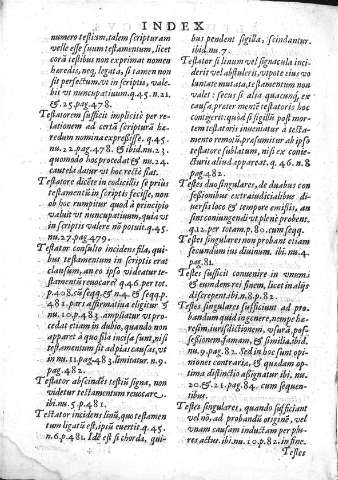 INDEX
numero testium, talem scripturam
velle esse suum testamentum, licet
corã testibus non exprimat nomen
heredis, neq; legata, si tamen non
sit perfectum, vt in scriptis, vale-
bit vt nuncupatiuum. q.45. n.21.
& 25. pag. 478.
Testatorem sufficit implicitè per re-
lationem ad certã scripturã he-
redum nomina expressisse. q.45.
nu.22. pag. 478. & ibid. nu.23.
quomodo hoc procedat & nu.24.
cautela datur vt hoc rectè fiat.
Testatore dicẽte in codicillis se prius
testamentũ in scriptis fecisse, non
ob hoc rumpitur quod à principio
valuit vt nuncupatiuum, quia vt
in scriptis valere nõ potuit. q.45.
nu.27. pag. 479.
Testator consulto incidens fila, qui-
bus testamentum in scriptis erat
clausum, an eo ipso videatur te-
stamentũ reuocare? q.46. per tot.
p.408. cũ seqq. & n.4. & seqq. p.
481. pars affirmatiua eligitur &
nu.10. p.483. ampliatur vt pro-
cedat etiam in dubio, quando non
apparet à quo fila incisa sunt, nisi
testamentum sit ad pias causas, vt
in nu.11. pag. 483. limitatur. n.9.
pag. 482.
Testator abscindẽs testiũ signa, non
videtur testamentum reuocare.
ibi. nu.5. p.481.
Testator incidens linũ, quo testamen
tum ligatũ est, ipsũ euertit. q.45.
n.6. p.481. Idẽ est si chorda, qui-
bus pendent sigilla, scindantur.
ibid. nu.7.
Testator si linum vel signacula inci-
derit vel abstulerit, vtpote eius vo
luntate mutata, testamentum non
valet: secus si alia quacunq; ex
causa, præter mentẽ testatoris hoc
contigerit: quid si sigilla post mor-
tem testatoris inueniantur à testa-
mento remota, præsumitur ab ipso
testatore sublatum, nisi ex conie-
cturis aliud appareat. q.46. n.8
pag. 482.
Testes duo singulares, de duabus con
fessionibus extraiudicialibus di-
uersis loco & tempore emissis, an
sint coniungendi vt plenè probent.
q.12. per totam. p.80. cum seqq.
Testes singulares non probant etiam
secundum ius diuinum. ibi. nu.4.
pag. 81.
Testes sufficit conuenire in vnum,
& eundem rei finem, licet in alijs
discrepent. ibi. n.8. p.82.
Testes singulares sufficiunt ad pro-
bandum quid in genere, nempe hæ-
resim, iurisdictionem, vsurã, pos-
sessionem, famam, & similia. ibid.
nu.9. pag. 82. Sed in hoc sunt opi-
niones contrariæ, & quædam op-
tima distinctio assignatur ibi. nu.
20. & 21. pag. 84. cum sequen-
tibus.
Testes singulares, quando sufficiant
vel nõ, ad probandũ originẽ, vel
vnam causam inductam per plu-
res actus. ibi. nu.10. p.82. in fine.
Testes